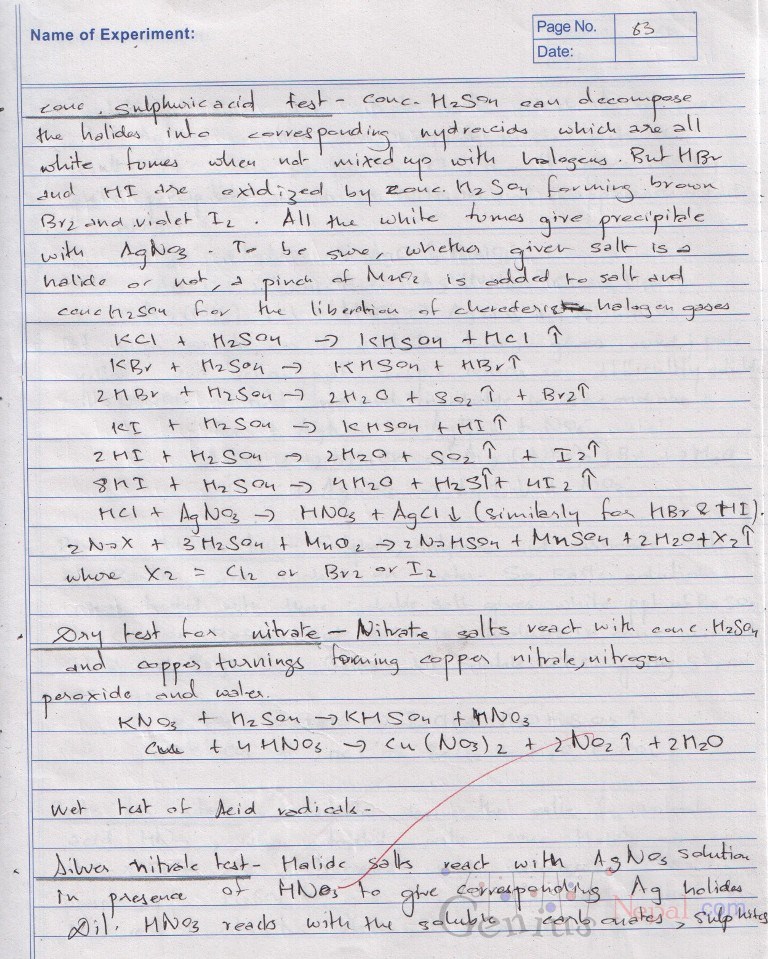 Name of Experiment:
Page No. 63
Date:
conc. sulphuric acid test - conc. H2SO4 can decompose
the halides into corresponding hydracids which are all
white fumes when not mixed up with halogens. But HBr
and HI are oxidized by conc. H2SO4 forming brown
Br2 and violet I2. All the white fumes give precipitate
with AgNO3. To be sure, whether given salt is a
halide or not, a pinch of MnO2 is added to salt and
conc H2SO4 for the liberation of halogen gases
KCl + H2SO4 → KHSO4 + HCl ↑
KBr + H2SO4 → KHSO4 + HBr ↑
2HBr + H2SO4 → 2H2O + SO2 ↑ + Br2 ↑
KI + H2SO4 → KHSO4 + HI ↑
2HI + H2SO4 → 2H2O + SO2 ↑ + I2 ↑
8HI + H2SO4 → 4H2O + H2S ↑ + 4I2 ↑
HCl + AgNO3 → HNO3 + AgCl ↓ (similarly for HBr & HI).
2NaX + 3H2SO4 + MnO2 → 2NaHSO4 + MnSO4 + 2H2O + X2 ↑
where X2 = Cl2 or Br2 or I2
Dry test for nitrate - Nitrate salts react with conc. H2SO4
and copper turnings forming copper nitrate, nitrogen
peroxide and water.
KNO3 + H2SO4 → KHSO4 + HNO3
+ 4HNO3 → Cu(NO3)2 + 2NO2 ↑ + 2H2O
Wet test of Acid radicals-
Silver nitrate test - Halide salts react with AgNO3 solution
in presence of HNO3 to give corresponding Ag halides
Dil. HNO3 reacts with the soluble carbonates, sulphites
Genius Nepal.com